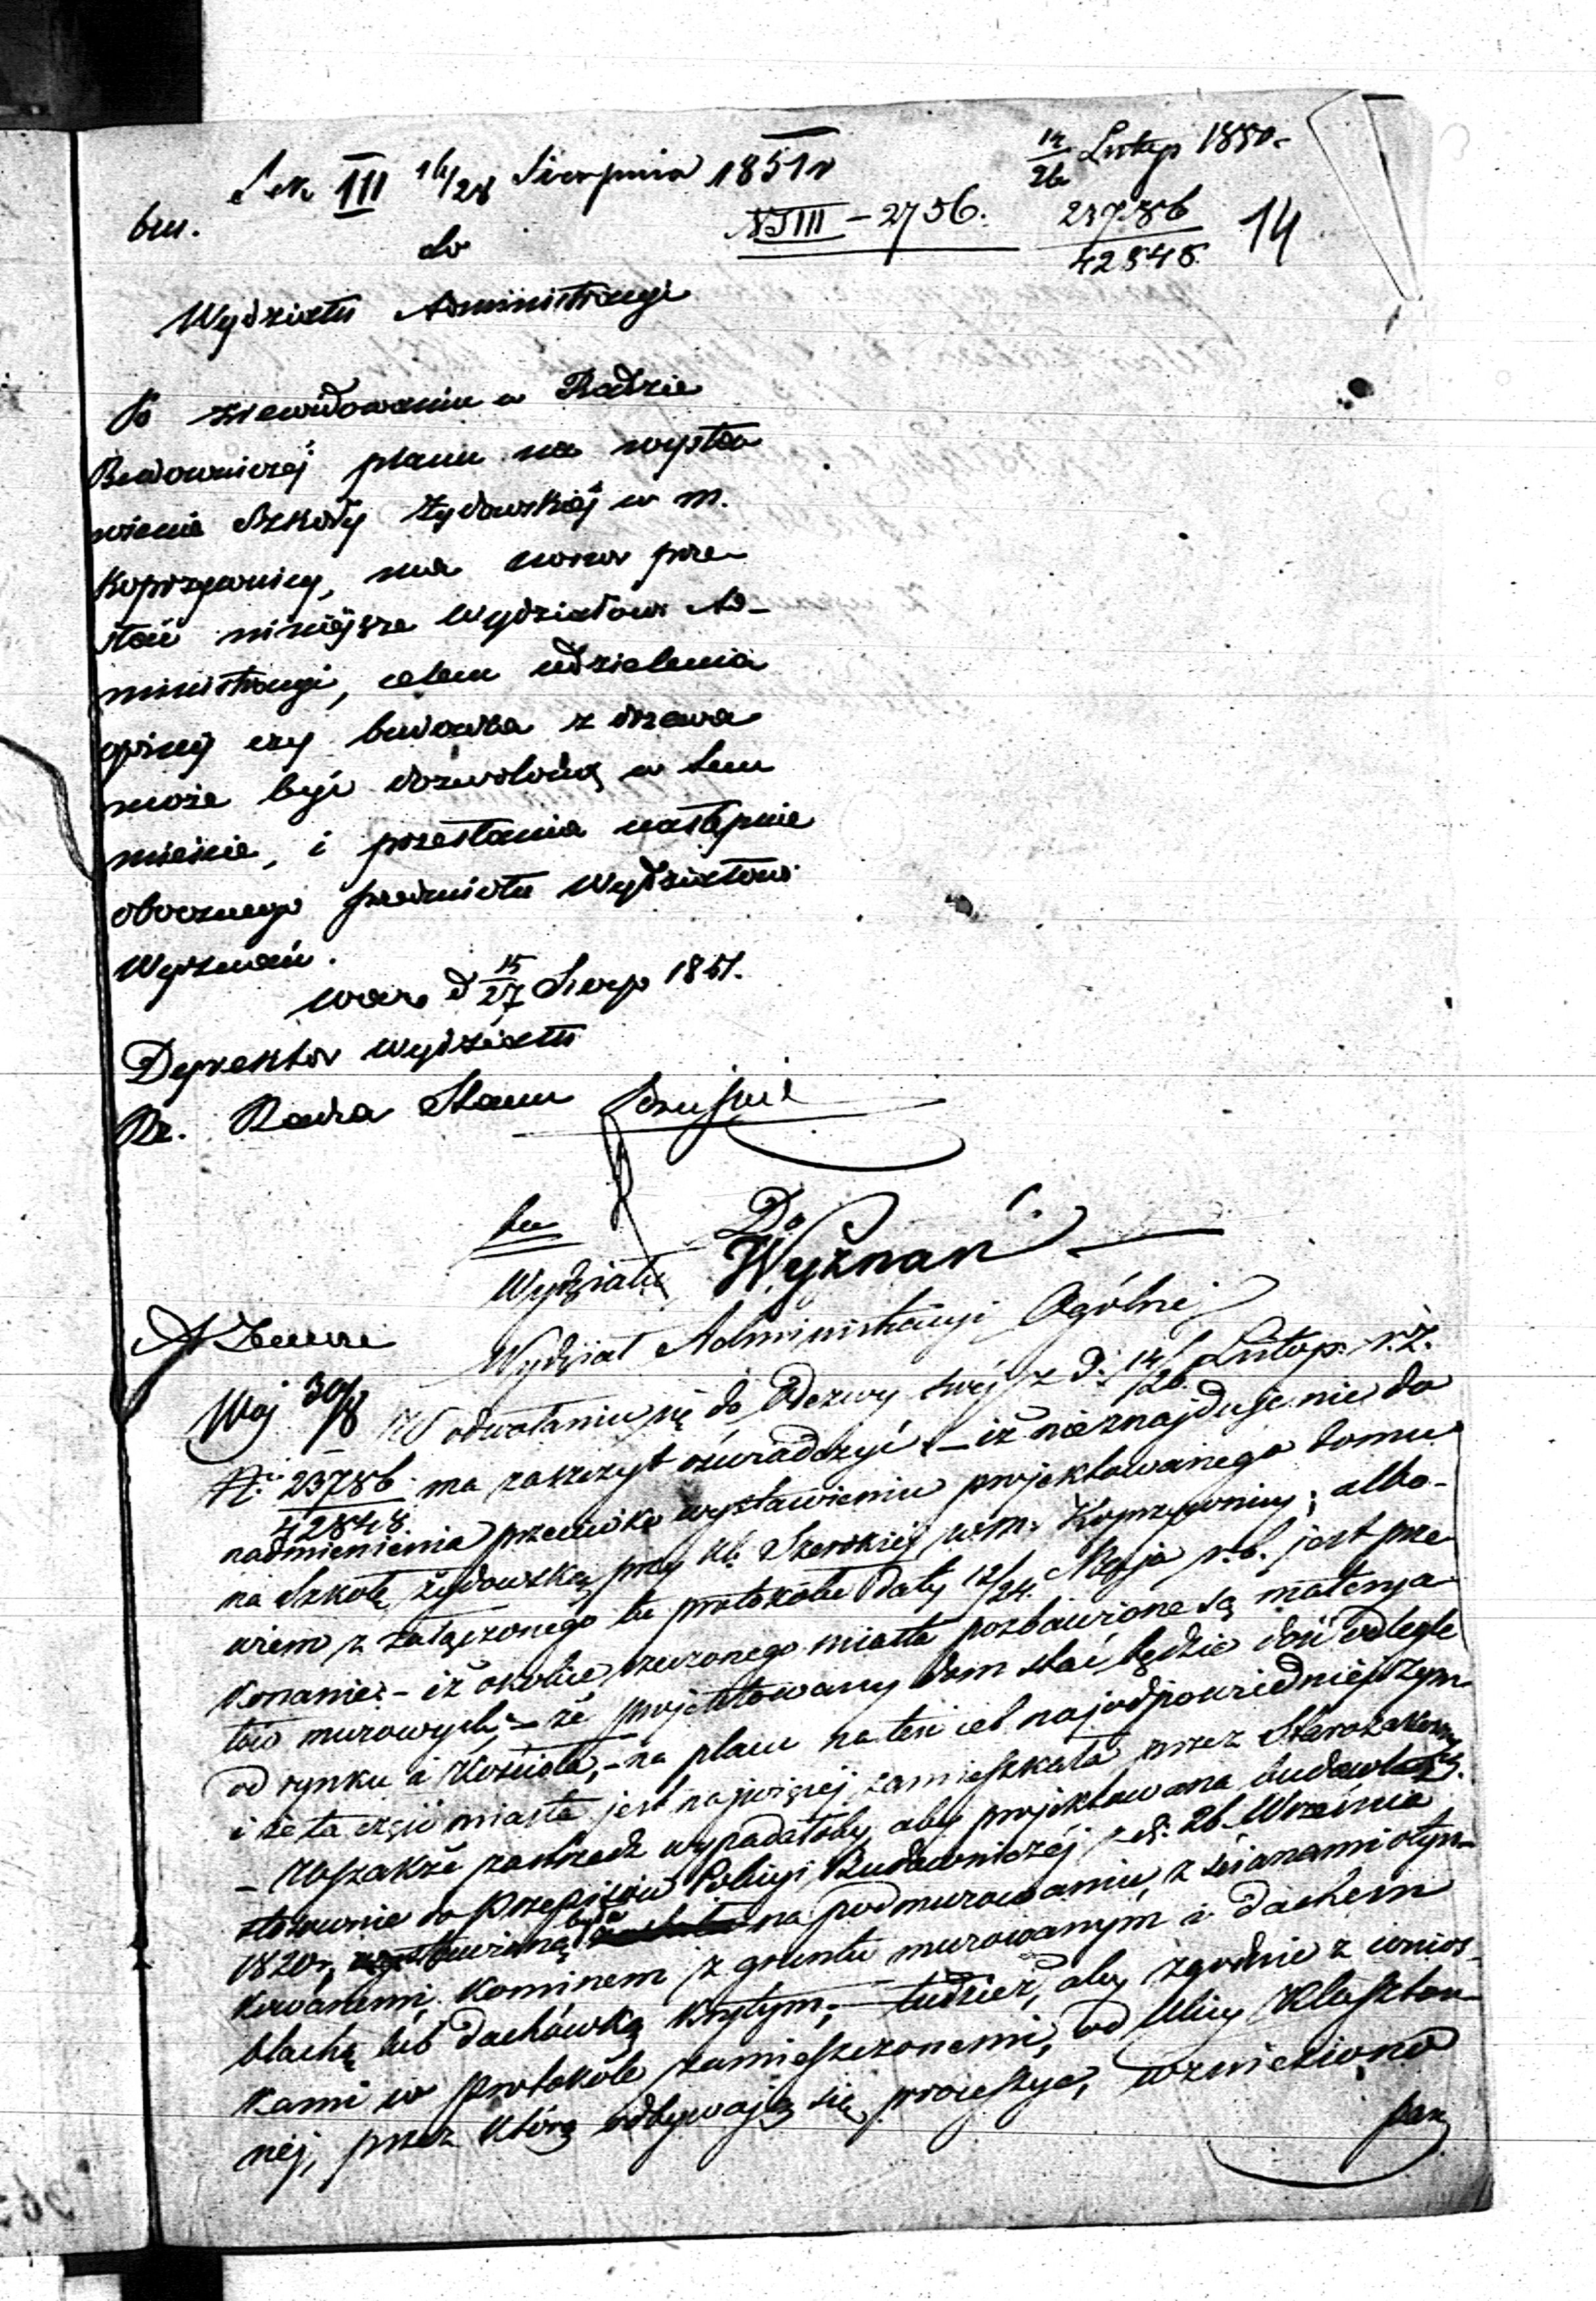 Sek III 16/28 Sierpnia 1851 r
14/26 Listop 1850.
bur.
do
N III – 2756.
23786/42848
14
Wydziału Administracyi
Po zrewidowaniu w Radzie
Budowniczéj planu na wysta
wienie Szkoły żydowskiéj w m.
Koprzywnicy, ma honor prze
słać niniéjsze Wydziałowi Ad-
ministracyi, celem udzielenia
opinij czy budowla z drzewa
może być dozwoloną w tem
mieście, i przesłania następnie
obocznego przedmiotu Wydziałowi
Wyznań.
War. d 15/27 Sierp 1851.
Dyrektor Wydziału
Rz. Radca Stanu
Do
Wydziału Wyznań
Wydział Administracyi Ogólnéj
30/8 W odwołaniu się do Odezwy swéj z d. 14/26 Listop. r. z.
N. 23786/42848 ma zaszczyt oświadczyć – iż nieznajduje nic do
nadmienienia przeciwko wystawieniu projektowanego domu
na Szkołę żydowską przy Ul. Szerokiéj w m. Koprzywnicy; albo-
wiem z załączonego tu protokółu daty 12/24. Maja r. b. jest prze
konanie: – iż okolice rzeczonego miasta pozbawione są materya
łów murowych; – że projektowany dom stać będzie dość odlegle
od rynku i Kościoła; – na placu na ten cel najodpowiedniejszym
i że ta część miasta jest najwięcéj zamieszkała przez Starozakonnych.
– Wszakże zawsze wypadałoby, aby projektowana budowla
stosownie do przepisów Policyi Budowniczéj z d. 26 Września
1820 r, wystawioną była na podmurowaniu, z ścianami otyn-
kowanemi, kominem z gruntu murowanym i dachem
blachą lub dachówką krytym; – tudzież, aby zgodnie z wnios-
kami w protokóle zamieszczonemi, od Ulicy Klasztor-
néj, przez którą odbywają się processye, wzniesiono
par